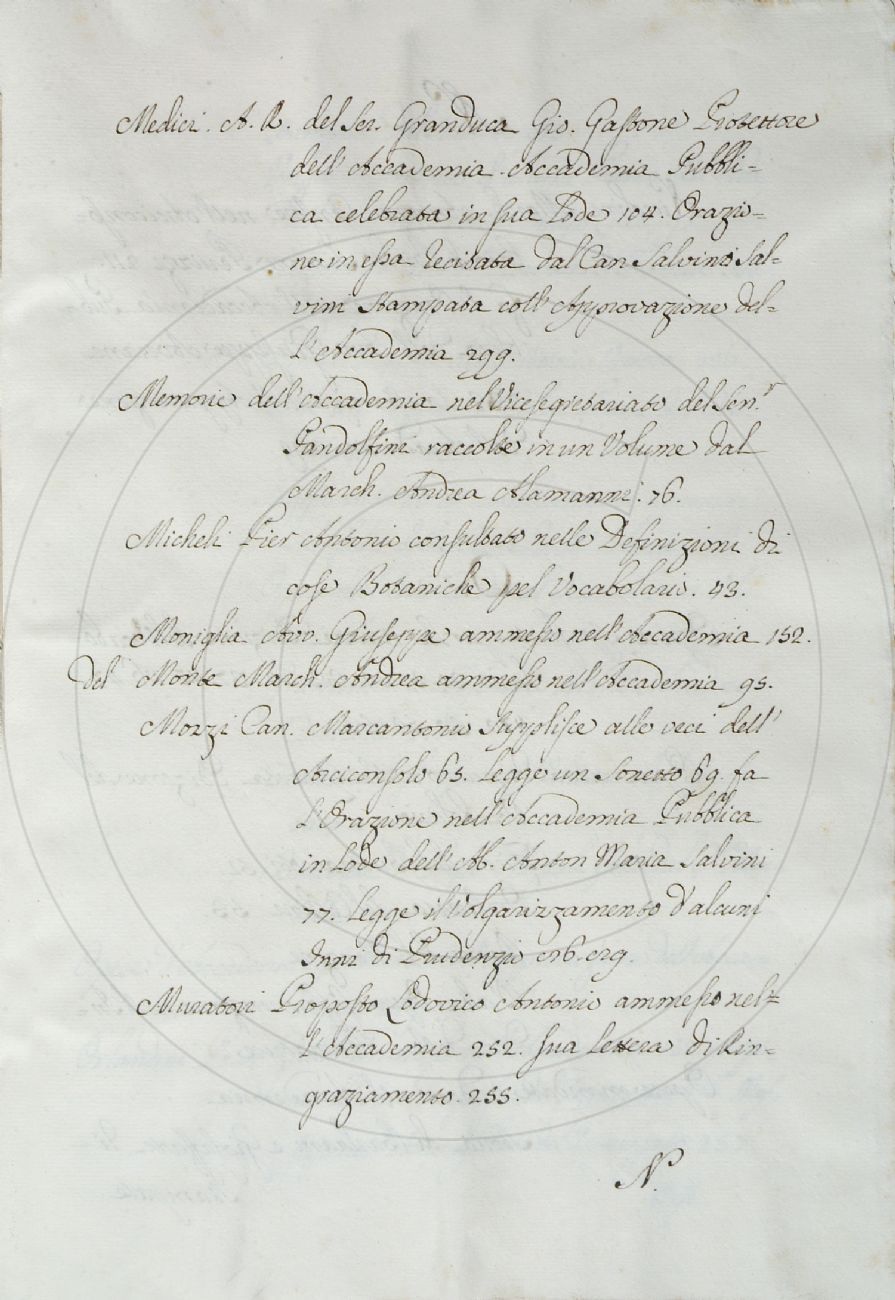 Medici. A. R. del Ser. Granduca Gio. Gastone Protettore
dell'Accademia. Accademia Pubbli=
ca celebrata in sua Lode 104. Orazio=
ne in essa recitata dal Can. Salvino Sal=
vini Stampata coll'Approvazione del=
l'Accademia 299.
Memorie dell'Accademia nel Vicesegretariato del Sen.r
Pandolfini raccolte in un Volume dal
March. Andrea Alamanni. 76.
Micheli Pier Antonio consultato nelle Definizioni di
cose Botaniche pel Vocabolario. 43.
Moniglia Avv. Giuseppe ammesso nell'Accademia 152.
del Monte March. Andrea ammesso nell'Accademia 95.
Mozzi Can. Marcantonio Supplisce alle veci dell'
Arciconsolo 65. Legge un Sonetto 69. fa
l'Orazione nell'Accademia Pubblica
in Lode dell'Ab. Anton Maria Salvini
77. Legge il Volgarizzamento d'alcuni
Inni di Prudenzio
Muratori Proposto Lodovico Antonio ammesso nel=
l'Accademia 252. sua Lettera di Rin=
graziamento. 255.
N.